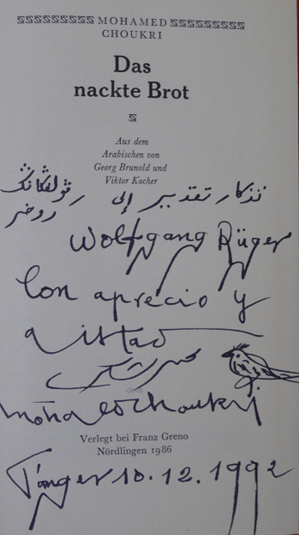 MOHAMED
CHOUKRI
Das
nackte Brot
Aus dem
Arabischen von
Georg Brunold und
Viktor Kocher
تذكار تقدير إلى
روخر
Wolfgang Rüger
Con aprecio y
mistad
محمد شكري
Mohamed Choukri
Verlegt bei Franz Greno
Nördlingen 1986
Tánger 10.12.1992